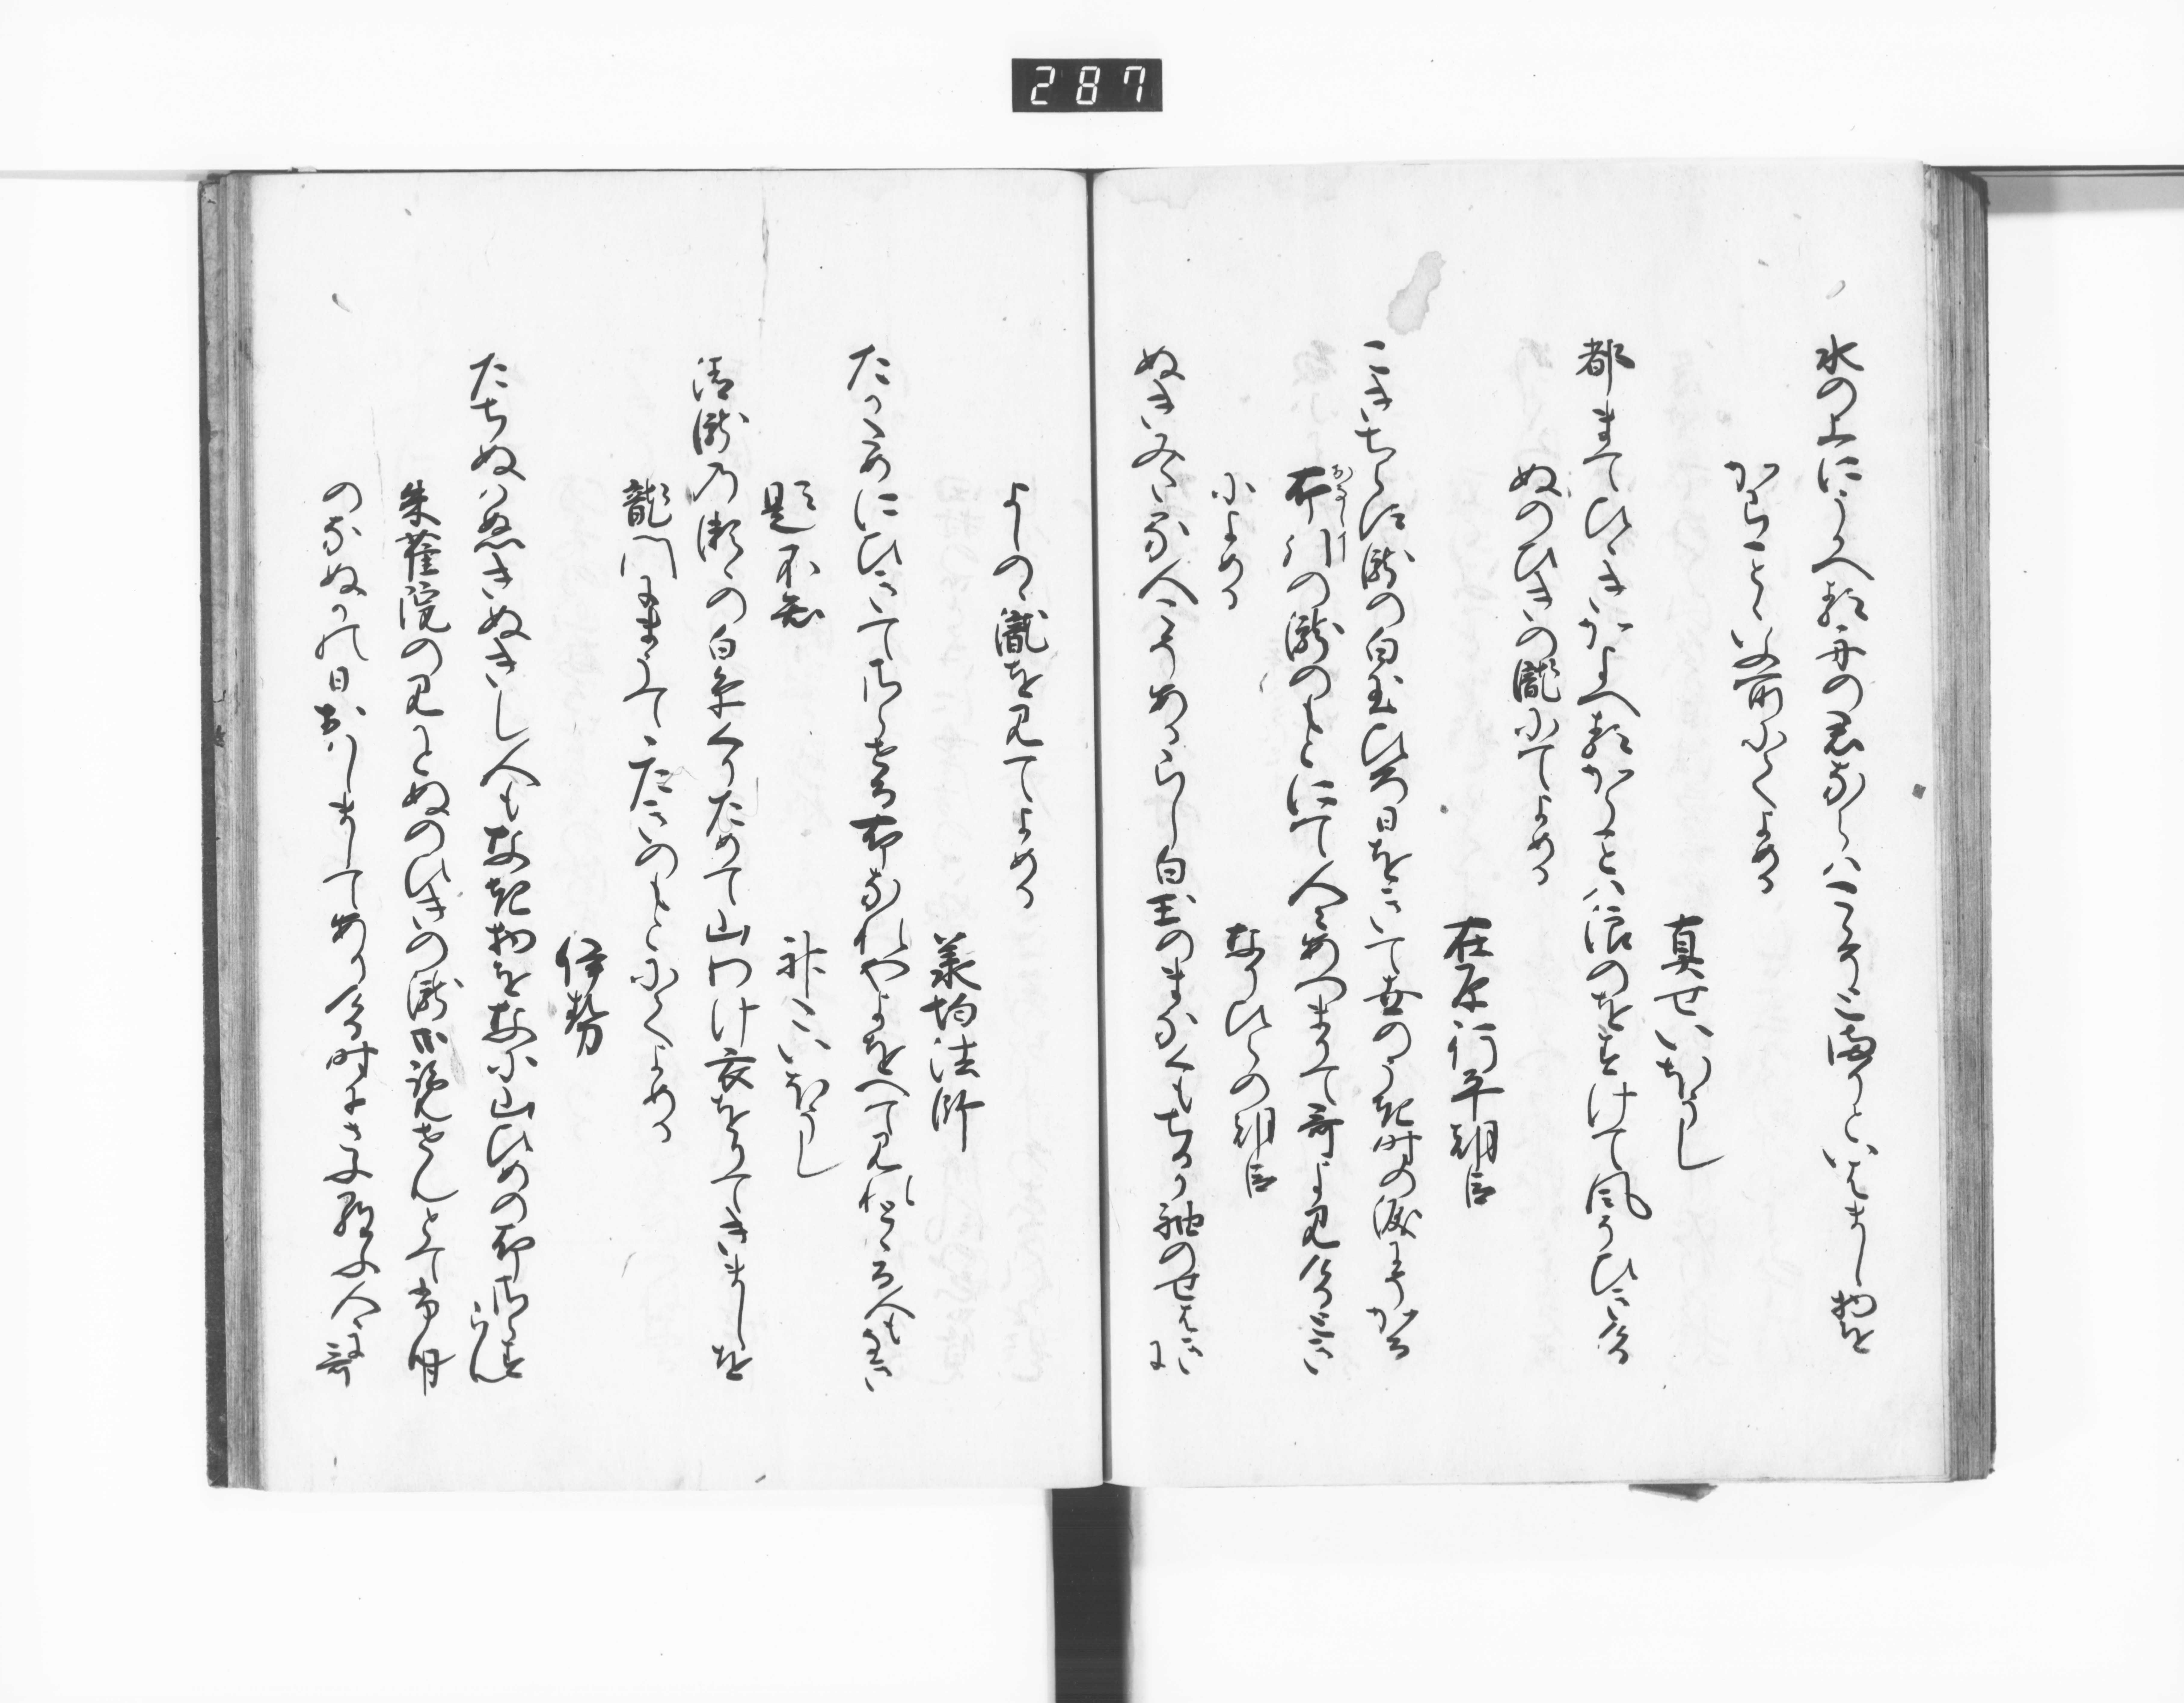 287
水の上にうかへる舟の君ならはこゝそとまりといはまし物を
からことゝいふ所にてよめる
真せいほうし
都まてひゝきかよへるからことは浪のをすけて風そひきける
ぬのひきの瀧にてよめる
在原行平朝臣
こきちらす瀧の白玉ひろひをきて世のうき時の涙にそかる
布引の瀧のもとにて人々あつまりて哥よみける時
によめる
なりひらの朝臣
ぬきみたる人こそあるらし白玉のまなくもちるか袖のせはきに
よしのゝ瀧を見てよめる
承均法師
たかためにひきてさらせる布なれやよをへて見れとゝる人もなき
題不知
神たいほうし
清瀧の瀬ゝの白糸くりためて山わけ衣をりてきましを
龍門にまうてゝたきのもとにてよめる
伊勢
たちぬはぬきぬきし人もなき物をなに山ひめの布さらすらん
朱雀院のみかとぬのひきの瀧御覧せんとて七月
のなぬかの日おはしましてありける時にさふらふ人々に哥